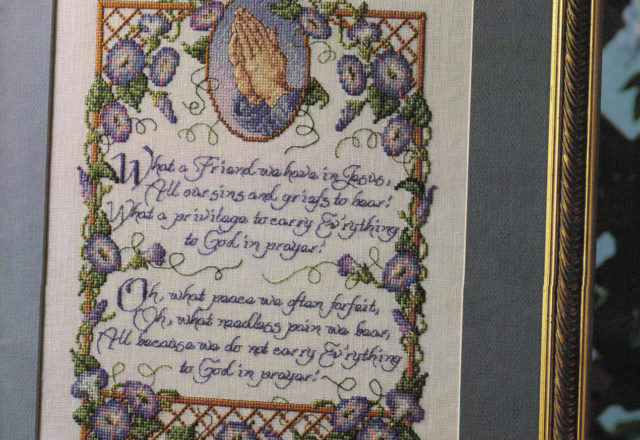 What a Friend we have in Jesus,
All our sins and griefs to bear!
What a privilege to carry Ev'rything
to God in prayer!
Oh, what peace we often forfeit,
Oh, what needless pain we bear,
All because we do not carry Ev'rything
to God in prayer!